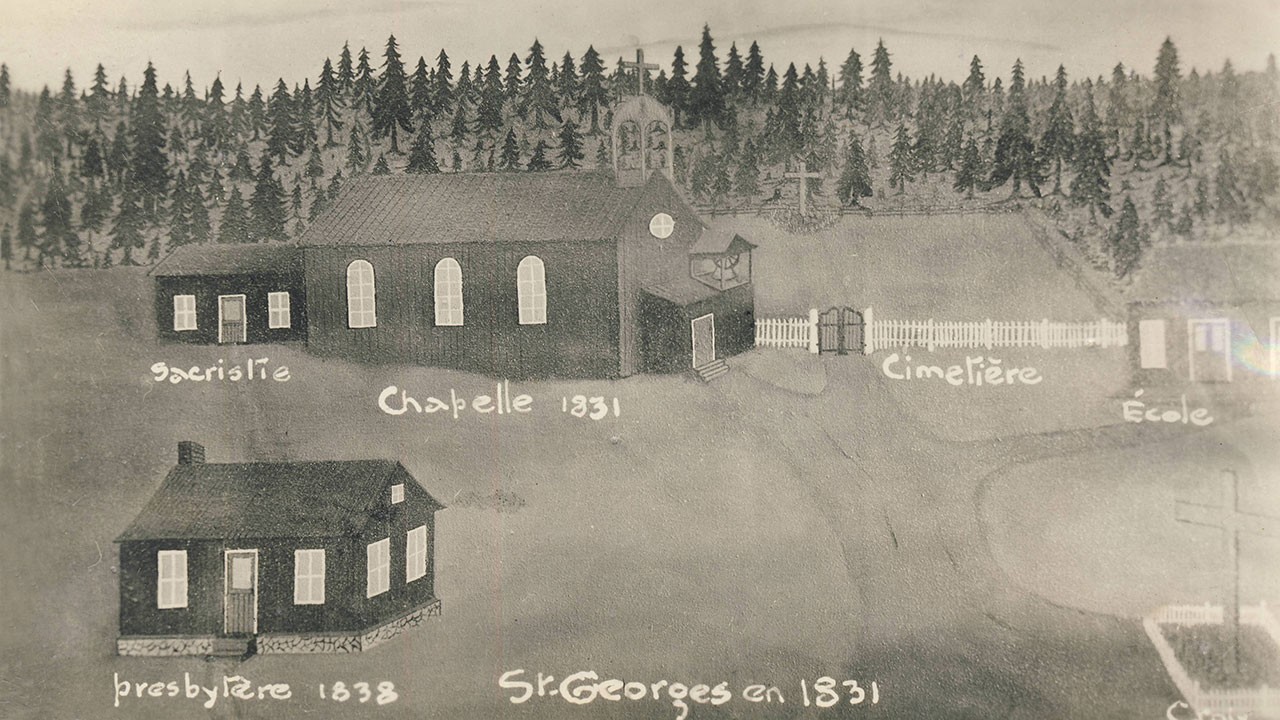 Sacristie
Chapelle 1831
Cimetière
École
presbytère 1838
St-Georges en 1831